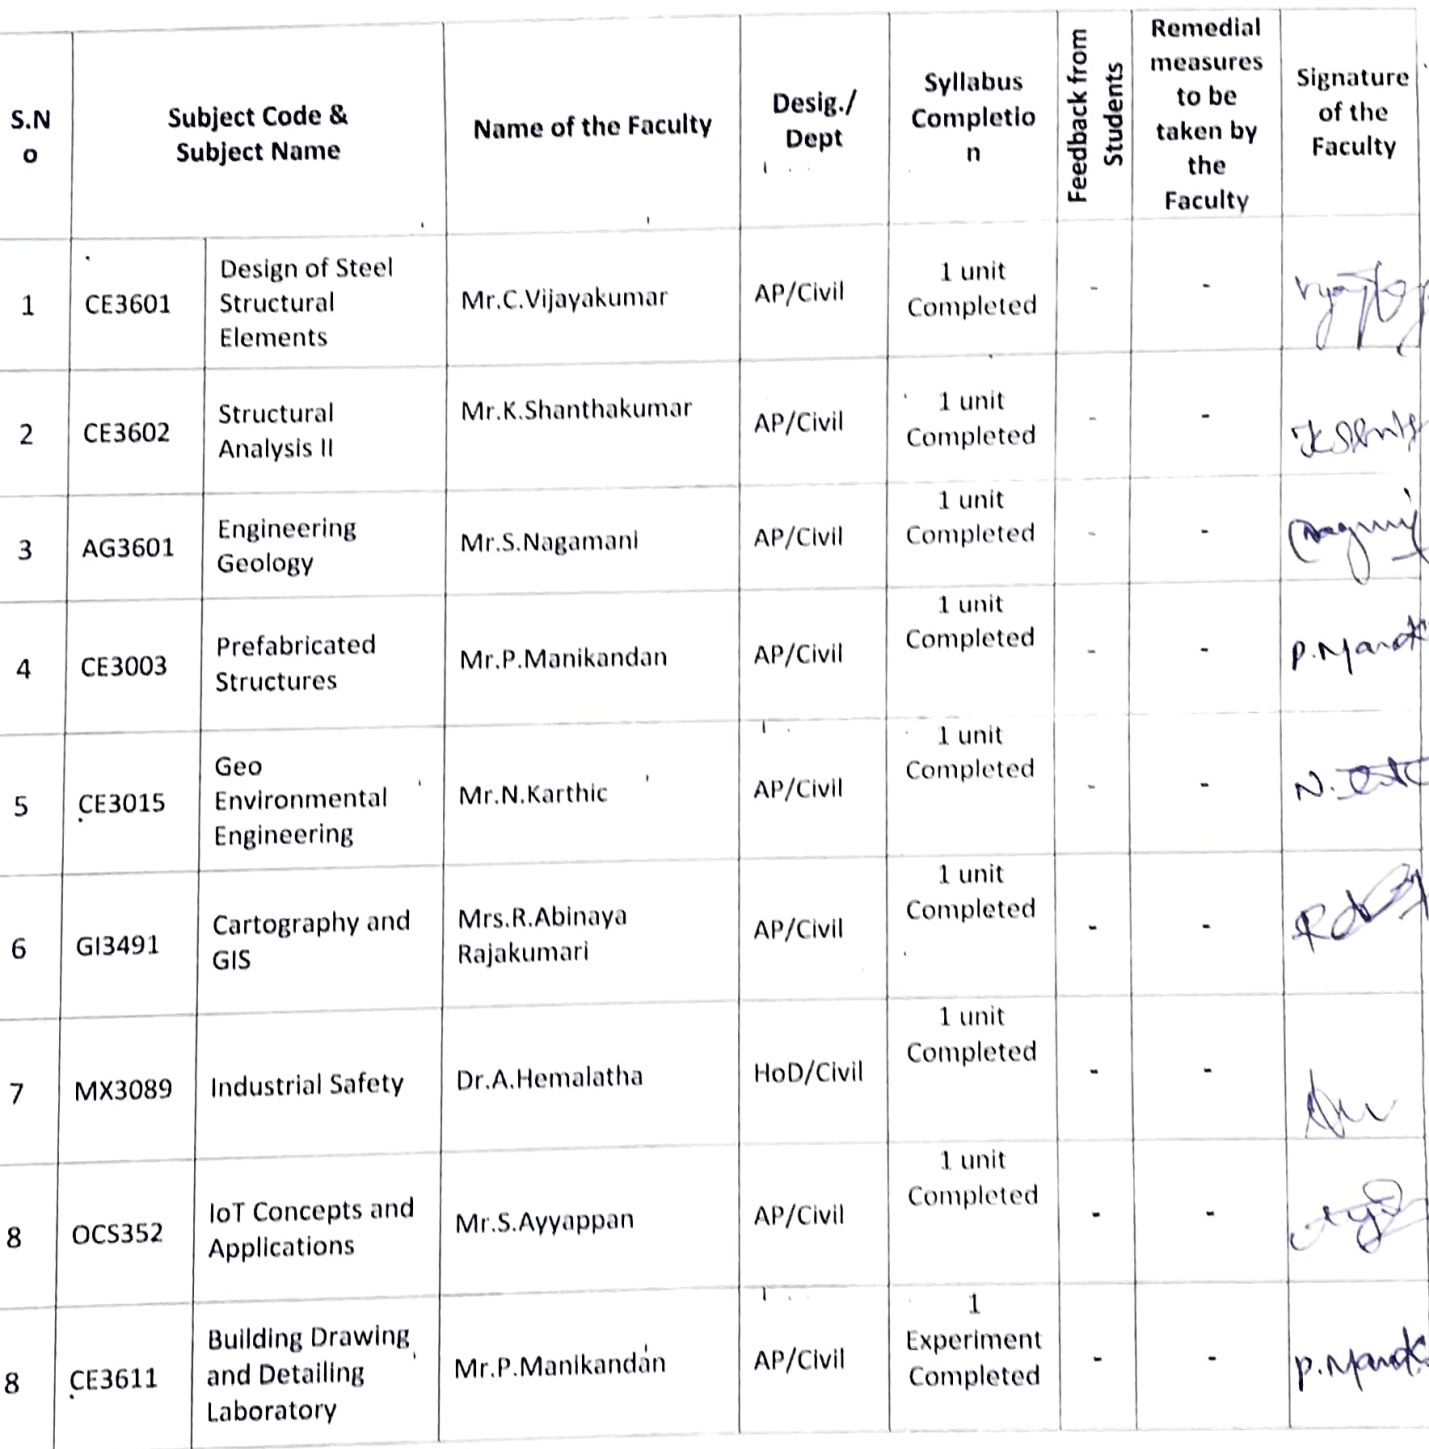 S.N
o
Subject Code &
Subject Name
Name of the Faculty
Desig./
Dept
Syllabus
Completio
n
Feedback from
Students
Remedial
measures
to be
taken by
the
Faculty
Signature
of the
Faculty
1
CE3601
Design of Steel
Structural
Elements
Mr.C.Vijayakumar
AP/Civil
1 unit
Completed
-
-
2
CE3602
Structural
Analysis II
Mr.K.Shanthakumar
AP/Civil
1 unit
Completed
-
-
3
AG3601
Engineering
Geology
Mr.S.Nagamani
AP/Civil
1 unit
Completed
-
-
4
CE3003
Prefabricated
Structures
Mr.P.Manikandan
AP/Civil
1 unit
Completed
-
-
5
CE3015
Geo
Environmental
Engineering
Mr.N.Karthic
AP/Civil
1 unit
Completed
-
-
6
GI3491
Cartography and
GIS
Mrs.R.Abinaya
Rajakumari
AP/Civil
1 unit
Completed
-
-
7
MX3089
Industrial Safety
Dr.A.Hemalatha
HoD/Civil
1 unit
Completed
-
-
8
OCS352
IoT Concepts and
Applications
Mr.S.Ayyappan
AP/Civil
1 unit
Completed
-
-
8
CE3611
Building Drawing
and Detailing
Laboratory
Mr.P.Manikandan
AP/Civil
1
Experiment
Completed
-
-